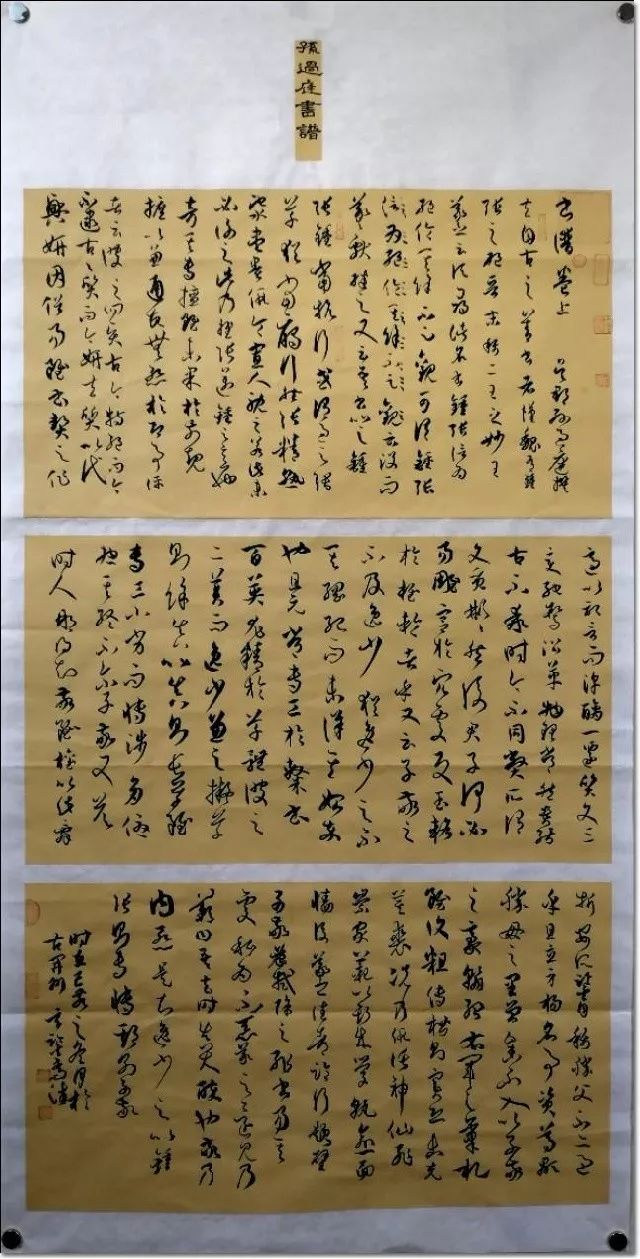 孫過庭書譜
書譜卷上 吳郡孫過庭撰
夫自古之善書者漢魏有鍾
張之絕晉末稱二王之妙王
羲之云頃尋諸名書鍾張信為
絕倫其餘不足觀可謂鍾張
信為絕倫其餘不足觀云沒而
羲獻繼之又云吾書比之鍾
張鍾當抗行或謂過之張
草猶當雁行然張精熟
池水盡墨假令寡人耽之若此未
必謝之此乃推張邁鍾之意也
考其專擅雖未果於前規
摭以兼通故無慚於即事評
者云彼之四賢古今特絕而今
不逮古古質而今妍夫質以代
興妍因俗易雖書契之作
適以記言而淳醨一遷質文三
變馳鶩沿革物理常然貴能
古不乖時今不同弊所謂
文質彬彬然後君子何必
易雕宮於穴處反玉輅
於椎輪者乎又云子敬之
不及逸少猶逸少之不
其綱紀而未詳其始卒
也且元常專工於隸書
百英尤精於草體彼之
二美而逸少兼之擬草
則餘真比真則長草雖
專工小劣而博涉多優
總其終子敬又答
時人那得知敬雖權以此辭
折安所鑒自稱勝父不亦過
乎且立身揚名事資尊顯
勝母之里曾參不入以子敬
之豪翰紹右軍之筆札
雖復粗傳楷則實恐未克
箕裘況乃假託神仙恥
崇家範以斯成學孰愈面
牆後羲之往都臨行題壁
子敬密拭除之輒書易其
處私為不惡羲之還見乃
歎曰吾去時真大醉也敬乃
內慚是知逸少之比鍾
張則專博斯別子敬
時在己亥之冬月於